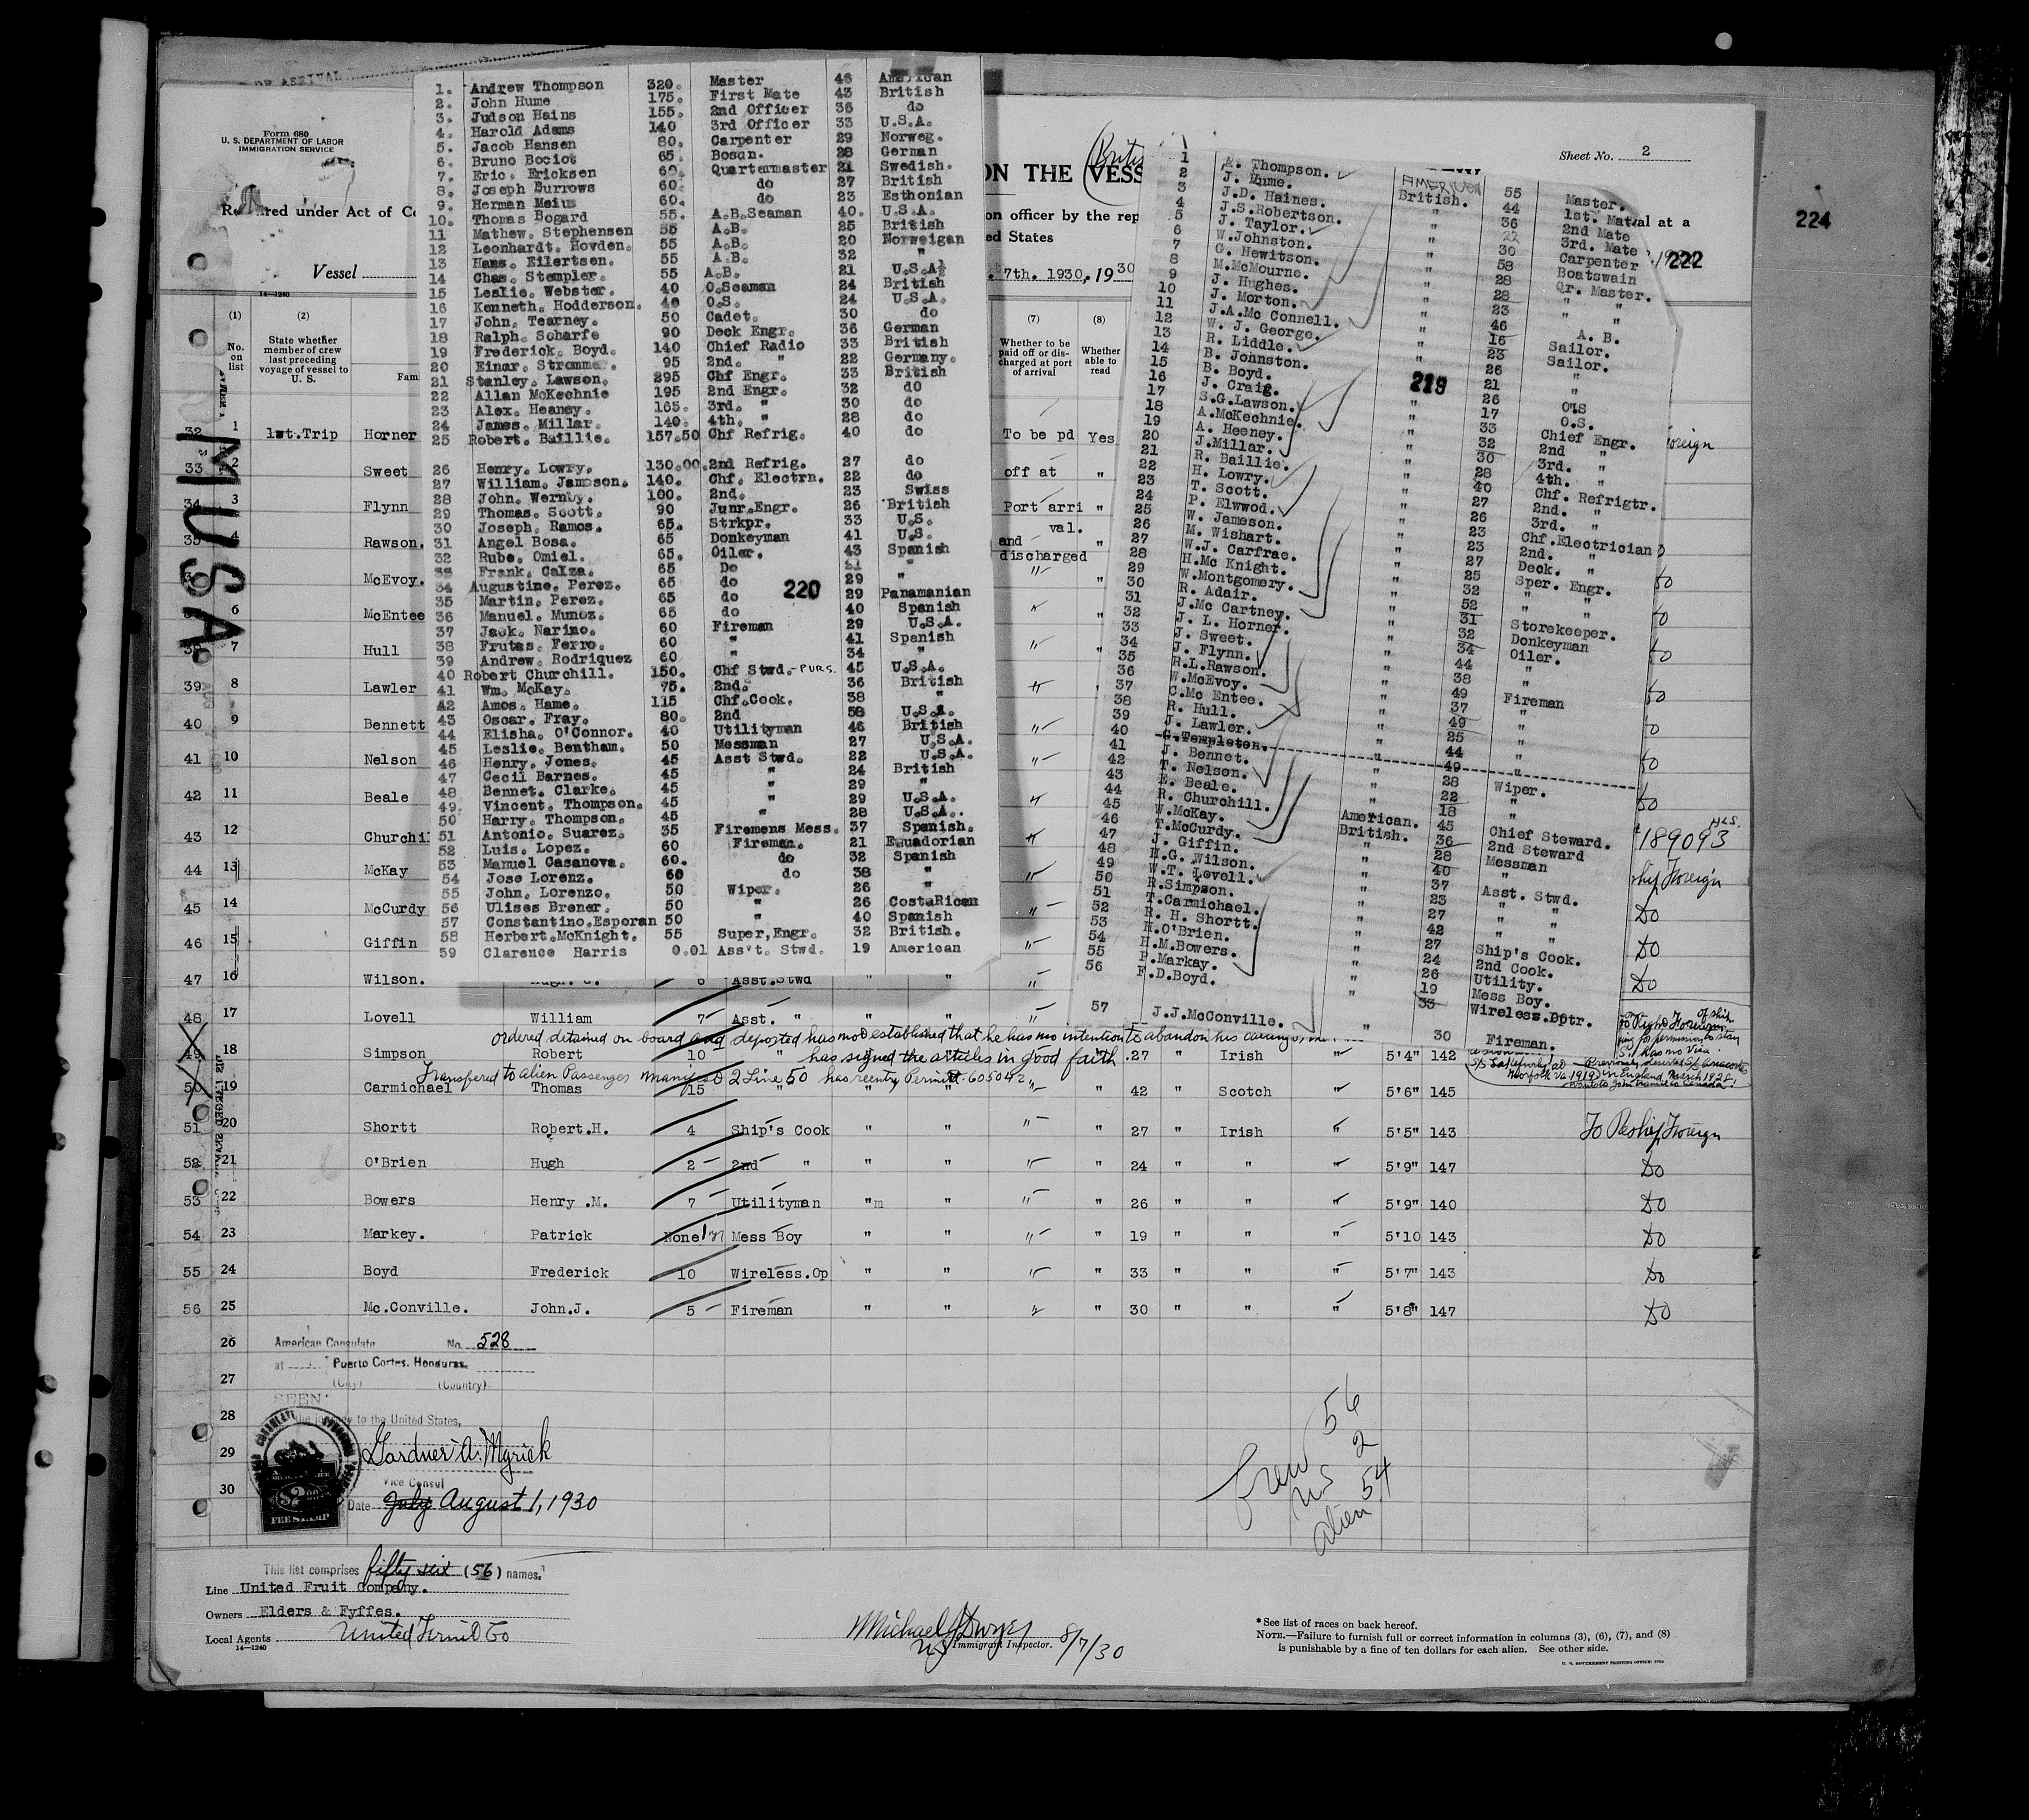 Form 680
U. S. DEPARTMENT OF LABOR
IMMIGRATION SERVICE
ON THE VESS
Sheet No. 2
224
222
red under Act of Co
on officer by the rep
val at a
ed States
Vessel
7th. 1930, 1930
14-1240
(1) (2) (7) (8)
No. on list
State whether member of crew last preceding voyage of vessel to U. S.
Fam
Whether to be paid off or discharged at port of arrival
Whether able to read
MUSA
1. Andrew Thompson 320. Master 46 American
2. John Hume 175. First Mate 43 British
3. Judson Hains 155. 2nd Officer 36 do
4. Harold Adams 140 3rd Officer 33 U.S.A.
5. Jacob Hansen 80. Carpenter 29 Norweg.
6. Bruno Bociot 65. Bosun. 28 German
7. Eric. Ericksen 60. Quartermaster 21 Swedish.
8. Joseph Burrows 60. do 27 British
9. Herman Meius 60. do 23 Esthonian
10. Thomas Bogard 55. A.B.Seaman 40. U.S.A.
11 Mathew. Stephensen 55 A.B. 25 British
12 Leonhardt. Hovden. 55 A.B. 20 Norweigan
13 Hans. Eilertsen. 55 A.B. 32 "
14 Chas. Stempler. 55 A.B. 21 U.S.A.
15 Leslie. Webster. 40 O.Seaman 24 British
16 Kenneth. Hodderson. 40 O.S. 24 U.S.A.
17 John. Tearney. 50 Cadet. 30 do
18 Ralph. Scharfe 90 Deck Engr. 36 German
19 Frederick. Boyd. 140 Chief Radio 33 British
20 Einar. Strommer. 95 2nd. " 22 Germany.
21 Stanley. Lawson. 295 Chf Engr. 33 British
22 Allan McKechnie 195 2nd Engr. 32 do
23 Alex. Heaney. 165. 3rd. " 30 do
24 James. Millar. 140. 4th. " 28 do
25 Robert. Baillie. 157.50 Chf Refrig. 40 do
26 Henry. Lowry. 130.00. 2nd Refrig. 27 do
27 William. Jameson. 140. Chf. Electrn. 22 do
28 John. Wernby. 100. 2nd. 23 Swiss
29 Thomas. Scott. 90 Junr.Engr. 26 British
30 Joseph. Ramos. 65. Strkpr. 33 U.S.
31 Angel Bosa. 65 Donkeyman 41 U.S.
32 Rube. Omiel. 65. Oiler. 43 Spanish
33 Frank. Calza. 65 Do 21 "
34 Augustine. Perez. 65 do 220 29 "
35 Martin. Perez. 65 do 29 Panamanian
36 Manuel. Munoz. 65 do 40 Spanish
37 Jack. Narino. 60 Fireman 29 U.S.A.
38 Frutas. Ferro. 60 " 41 Spanish
39 Andrew. Rodriquez 60 " 34 "
40 Robert Churchill. 150. Chf Stwd.-PURS. 45 U.S.A.
41 Wm. McKay. 75. 2nd. 36 British
42 Amos. Hame. 115 Chf.Cook. 38 "
43 Oscar. Fray. 80. 2nd 58 U.S.A.
44 Elisha. O'Connor. 40 Utilityman 46 British
45 Leslie. Bentham. 50 Messman 27 U.S.A.
46 Henry. Jones. 45 Asst Stwd. 22 U.S.A.
47 Cecil Barnes. 45 " 24 British
48 Bennet. Clarke. 45 " 29 "
49. Vincent. Thompson. 45 " 29 U.S.A.
50 Harry. Thompson. 45 " 28 U.S.A.
51 Antonio. Suarez. 35 Firemens Mess. 37 Spanish.
52 Luis. Lopez. 60 Fireman. 21 Equadorian
53 Manuel Casanova. 60. do 32 Spanish
54 Jose Lorenz. 60 do 38 "
55 John. Lorenzo. 50 Wiper. 26 "
56 Ulises Brener. 50 " 26 CostaRican
57 Constantino.Esporan 50 " 40 Spanish
58 Herbert.McKnight. 55 Super,Engr. 32 British.
59 Clarence Harris 0.01 Ass't. Stwd. 19 American
1 A. Thompson. AMERICAN 55 Master.
2 J. Hume. British. 44 1st. Mate
3 J.D. Haines. " 36 2nd Mate
4 J.S.Robertson. " 22 3rd. Mate
5 J. Taylor. " 30 Carpenter
6 W.Johnston. " 58 Boatswain
7 G. Hewitson. " 28 Qr. Master.
8 M.McMourne. " 28 " "
9 J. Hughes. " 23 " "
10 J. Morton. " 46 A. B.
11 J.A.Mc Connell. " 16 Sailor.
12 W. J. George. " 23 Sailor.
13 R. Liddle. " 26 "
14 B. Johnston. " 21 "
15 B. Boyd. " 26 O.S
16 J. Craig. 219 17 O.S.
17 S.G.Lawson. " 33 Chief Engr.
18 A.McKechnie. " 32 2nd "
19 A. Heeney. " 30 3rd. "
20 J.Millar. " 28 4th. "
21 R. Baillie. " 40 Chf. Refrigtr.
22 H. Lowry. " 27 2nd. "
23 T. Scott. " 26 3rd. "
24 P. Elwwod. " 23 Chf.Electrician
25 W. Jameson. " 23 2nd. "
26 M. Wishart. " 27 Deck. "
27 W.J. Carfrae. " 25 Sper. Engr.
28 H.Mc Knight. " 32 " "
29 W.Montgomery. " 52 " "
30 R. Adair. " 31 Storekeeper.
31 J.Mc Cartney. " 32 Donkeyman
32 J. L. Horner. " 34 Oiler.
33 J. Sweet. " 44 "
34 J. Flynn. " 38 "
35 R.L.Rawson. " 49 Fireman
36 W.McEvoy. " 37 "
37 C.Mc Entee. " 49 "
38 R. Hull. " 25 "
39 J. Lawler. " 44 "
40 G.Templeton. " 49 "
41 J. Bennet. " 28 Wiper.
42 T. Nelson. " 22 "
43 E. Beale. " 18 "
44 R. Churchill. American. 45 Chief Steward.
45 W.McKay. British. 36 2nd Steward
46 T.McCurdy. " 28 Messman
47 J. Giffin. " 40 "
48 H.G. Wilson. " 37 Asst. Stwd.
49 W.T. Lovell. " 23 " "
50 R.Simpson. " 27 " "
51 T.Carmichael. " 42 " "
52 R. H. Shortt. " 27 Ship's Cook.
53 H.O'Brien. " 24 2nd Cook.
54 H.M.Bowers. " 26 Utility.
55 P.Markay. " 19 Mess Boy.
56 F.D.Boyd. " 33 Wireless.Optr.
57 J.J.McConville. " 30 Fireman.
32 1 1st.Trip Horner To be pd Yes oreign
33 2 Sweet off at "
34 3 Flynn Port arri "
val.
35 4 Rawson. and "
discharged
McEvoy. " " Do
6 McEntee " Do
7 Hull " " Do
39 8 Lawler " Do
40 9 Bennett " Do
41 10 Nelson " Do
42 11 Beale " Do
43 12 Churchil " 189093
44 13 McKay " ship Foreign
45 14 McCurdy " Do
46 15 Giffin " Do
47 16 Wilson. Hugh. G. 6 Asst.Stwd " " " Do
48 17 Lovell William 7 Asst. " " " "
ordered detained on board and deported has not established that he has no intention to abandon his calling
18 Simpson Robert 10 " has signed the articles in good faith. 27 " Irish " 5'4" 142
Transfered to alien Passenger manifest 2 Line 50 has reentry Permit 605042
50 19 Carmichael Thomas 15 " " " " " 42 " Scotch " 5'6" 145
51 20 Shortt Robert.H. 4 Ship's Cook " " " " 27 " Irish " 5'5" 143 To Reship Foreign
52 21 O'Brien Hugh 2 2nd " " " " " 24 " " " 5'9" 147 Do
53 22 Bowers Henry .M. 7 Utilityman "m " " " 26 " " " 5'9" 140 Do
54 23 Markey. Patrick None Mess Boy " " " " 19 " " " 5'10 143 Do
55 24 Boyd Frederick 10 Wireless.Op " " " " 33 " " " 5'7" 143 Do
56 25 Mc.Conville. John.J. 5 Fireman " " " " 30 " " " 5'8" 147 Do
26 American Consulate No. 528
at Puerto Cortes, Honduras.
27 (City) (Country)
SEEN
28 the journey to the United States,
29 Gardner A. Myrick
Vice Consul
30 Date July August 1, 1930
FEE STAMP
56
Crew 2
US 54
alien
This list comprises fifty six (56) names.
Line United Fruit Company.
Owners Elders & Fyffes.
Local Agents United Fruit Co
14-1240
Immigrant Inspector. 8/7/30
*See list of races on back hereof.
NOTE.—Failure to furnish full or correct information in columns (3), (6), (7), and (8)
is punishable by a fine of ten dollars for each alien. See other side.
U. S. GOVERNMENT PRINTING OFFICE: 1929